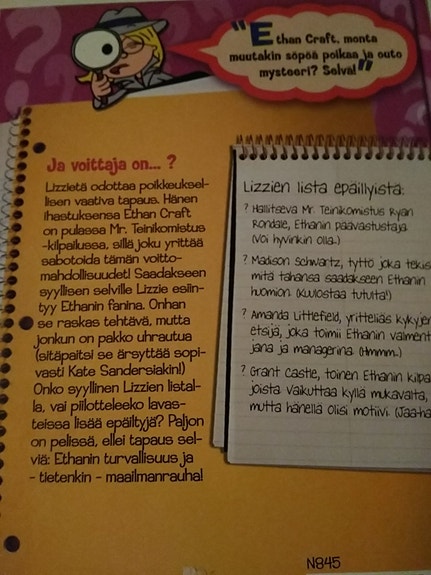 "Ethan Craft, monta
muutakin söpöä poikaa ja outo
mysteeri? Selvä!"
Ja voittaja on... ?
Lizzietä odottaa poikkeuksel-
lisen vaativa tapaus. Hänen
ihastuksensa Ethan Craft
on pulassa Mr. Teinikomistus
-kilpailussa, sillä joku yrittää
sabotoida tämän voitto-
mahdollisuudet! Saadakseen
syyllisen selville Lizzie esiin-
tyy Ethanin fanina. Onhan
se raskas tehtävä, mutta
jonkun on pakko uhrautua
(sitäpaitsi se ärsyttää sopi-
vasti Kate Sandersiakin!)
Onko syyllinen Lizzien listal-
la, vai piilotteleeko lavas-
teissa lisää epäiltyjä? Paljon
on pelissä, ellei tapaus sel-
viä: Ethanin turvallisuus ja
- tietenkin - maailmanrauha!
Lizzien lista epäillyistä:
? Hallitseva Mr. Teinikomistus Ryan
Rondale, Ethanin päävastustaja
(Voi hyvinkin olla...)
? Madison Schwartz, tyttö joka tekisi
mitä tahansa saadakseen Ethanin
huomion. (Kuulostaa tutulta!)
? Amanda Littlefield, yritteliäs kykyjen
etsijä, joka toimii Ethanin valment
jana ja managerina. (Hmmm...)
? Grant Castle, toinen Ethanin kilpa
joista. Vaikuttaa kyllä mukavalta,
mutta hänellä olisi motiivi. (Jaa-ha
N845